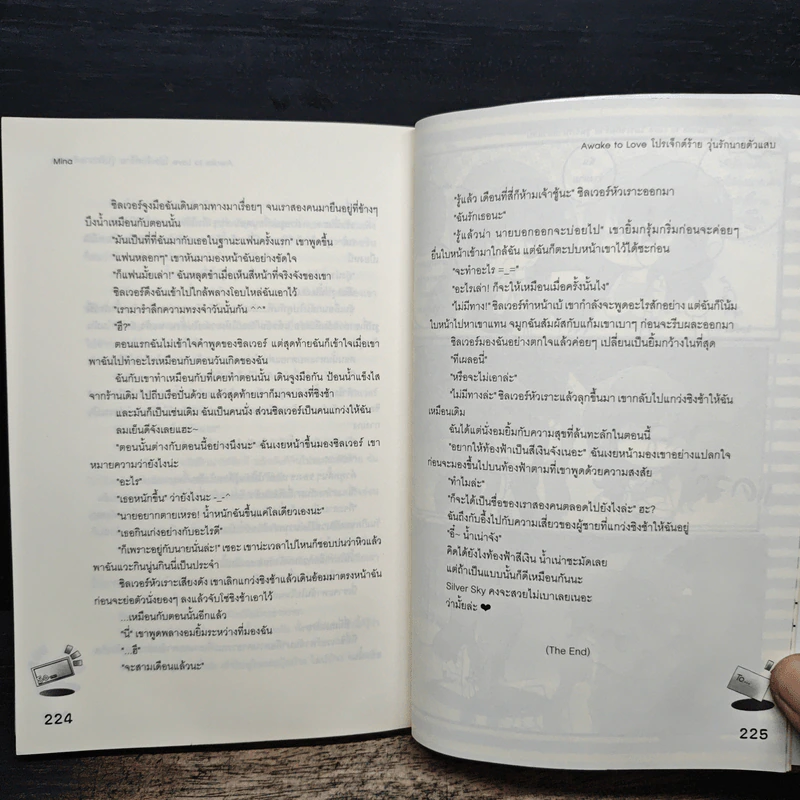 Mina
ซิลเวอร์จูงมือฉันเดินตามทางมาเรื่อยๆ จนเราสองคนมายืนอยู่ที่ข้างๆ
บึงน้ำเหมือนกับตอนนั้น
"มันเป็นที่ที่ฉันมากับเธอในฐานะแฟนครั้งแรก" เขาพูดขึ้น
"แฟนหลอกๆ" เขาหันมามองหน้าฉันอย่างขัดใจ
"ก็แฟนมั้ยเล่า!" ฉันหลุดขำเมื่อเห็นสีหน้าที่จริงจังของเขา
ซิลเวอร์ดึงฉันเข้าไปใกล้พลางโอบไหล่ฉันเอาไว้
"เรามารำลึกความทรงจำวันนั้นกัน ^^"
"ฮึ?"
ตอนแรกฉันไม่เข้าใจคำพูดของซิลเวอร์ แต่สุดท้ายฉันก็เข้าใจเมื่อเขา
พาฉันไปทำอะไรเหมือนกับตอนวันเกิดของฉัน
ฉันกับเขาทำเหมือนกับที่เคยทำตอนนั้น เดินจูงมือกัน ป้อนน้ำแข็งไส
จากร้านเดิม ไปถีบเรือปั่นด้วย แล้วสุดท้ายเราก็มาจบลงที่ชิงช้า
และมันก็เป็นเช่นเดิม ฉันเป็นคนนั่ง ส่วนซิลเวอร์เป็นคนแกว่งให้ฉัน
ลมเย็นดีจังเลยแฮะ~
"ตอนนั้นต่างกับตอนนี้อย่างนึงนะ" ฉันเงยหน้าขึ้นมองซิลเวอร์ เขา
หมายความว่ายังไงน่ะ
"อะไร"
"เธอหนักขึ้น" ว่ายังไงนะ -_-^
"นายอยากตายเหรอ! น้ำหนักฉันขึ้นแค่โลเดียวเองนะ"
"เธอกินเก่งอย่างกับอะไรดี"
"ก็เพราะอยู่กับนายนั่นล่ะ!" เชอะ เขาน่ะเวลาไปไหนก็ชอบบ่นว่าหิวแล้ว
พาฉันแวะกินนู่นกินนี่เป็นประจำ
ซิลเวอร์หัวเราะเสียงดัง เขาเลิกแกว่งชิงช้าแล้วเดินอ้อมมาตรงหน้าฉัน
ก่อนจะย่อตัวนั่งยองๆ ลงแล้วจับโซ่ชิงช้าเอาไว้
...เหมือนกับตอนนั้นอีกแล้ว
"นี่" เขาพูดพลางอมยิ้มระหว่างที่มองฉัน
"...ฮึ"
"จะสามเดือนแล้วนะ"
224
Awake to Love โปรเจ็กต์ร้าย วุ่นรักนายตัวแสบ
"รู้แล้ว เดือนที่สี่ก็ห้ามเจ้าชู้นะ" ซิลเวอร์หัวเราะออกมา
"ฉันรักเธอนะ"
"รู้แล้วน่า นายบอกออกจะบ่อยไป" เขายิ้มกรุ้มกริ่มก่อนจะค่อยๆ
ยื่นใบหน้าเข้ามาใกล้ฉัน แต่ฉันก็ตะปบหน้าเขาไว้ได้ซะก่อน
"จะทำอะไร =_="
"อะไรเล่า! ก็จะให้เหมือนเมื่อครั้งนั้นไง"
"ไม่มีทาง!" ซิลเวอร์ทำหน้าเบ้ เขากำลังจะพูดอะไรสักอย่าง แต่ฉันก็โน้ม
ใบหน้าไปหาเขาแทน จมูกฉันสัมผัสกับแก้มเขาเบาๆ ก่อนจะรีบผละออกมา
ซิลเวอร์มองฉันอย่างตกใจแล้วค่อยๆ เปลี่ยนเป็นยิ้มกว้างในที่สุด
"ทีเผลอนี่"
"หรือจะไม่เอาล่ะ"
"ไม่มีทางล่ะ" ซิลเวอร์หัวเราะแล้วลุกขึ้นมา เขากลับไปแกว่งชิงช้าให้ฉัน
เหมือนเดิม
ฉันได้แต่นั่งอมยิ้มกับความสุขที่ล้นทะลักในตอนนี้
"อยากให้ท้องฟ้าเป็นสีเงินจังเนอะ" ฉันเงยหน้ามองเขาอย่างแปลกใจ
ก่อนจะมองขึ้นไปบนท้องฟ้าตามที่เขาพูดด้วยความสงสัย
"ทำไมล่ะ"
"ก็จะได้เป็นชื่อของเราสองคนตลอดไปยังไงล่ะ" ฮะ?
ฉันถึงกับอึ้งไปกับความเสี่ยวของผู้ชายที่แกว่งชิงช้าให้ฉันอยู่
"อี๋~ น้ำเน่าจัง"
คิดได้ยังไงท้องฟ้าสีเงิน น้ำเน่าชะมัดเลย
แต่ถ้าเป็นแบบนั้นก็ดีเหมือนกันนะ
Silver Sky คงจะสวยไม่เบาเลยเนอะ
ว่ามั้ยล่ะ ❤
(The End)
TO~
225